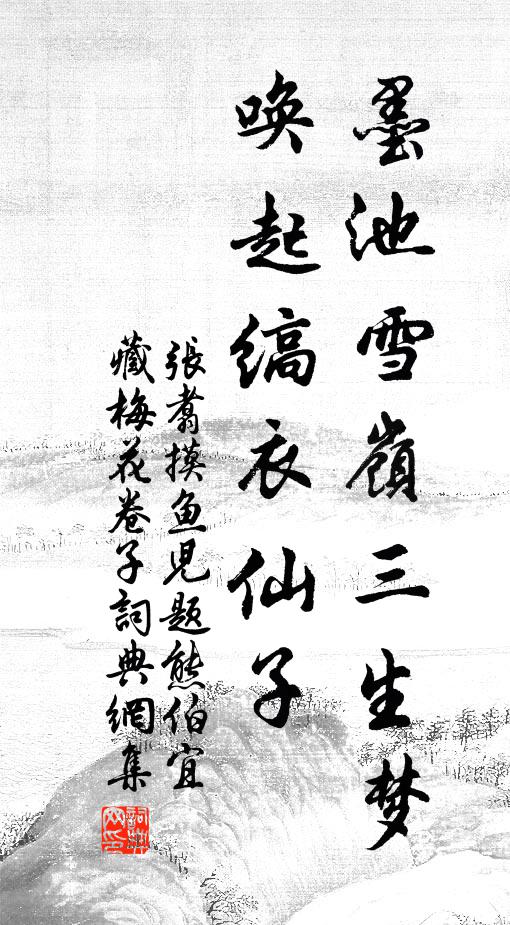 墨池雪嶺三生梦
唤起縞衣仙子
張翥摸鱼児題熊伯宜
藏梅花卷子詞典網集